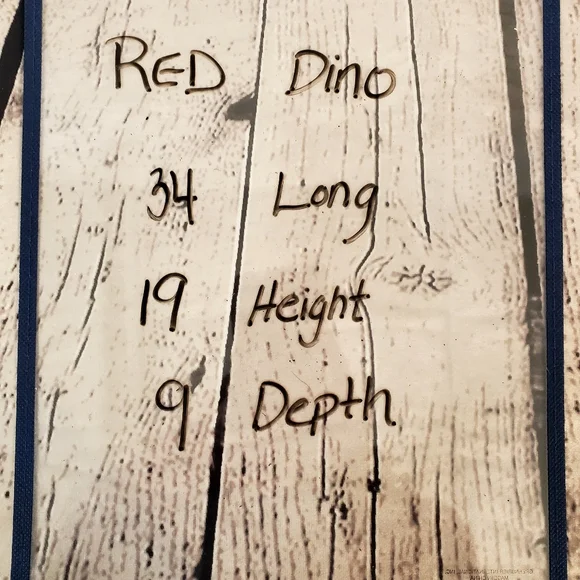 RED Dino
34 Long
19 Height
9 Depth